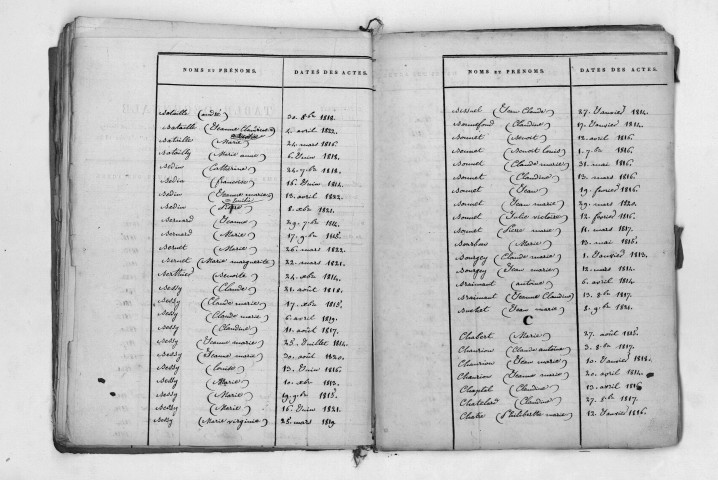 NOMS ET PRÉNOMS. DATES DES ACTES.
Bataille (andré) 30. 8bre 1818.
Bataille (Jeanne Claudine) 4. avril 1822.
Bataille (Marie) 24. mars 1816.
Batailly (Marie anne) 6. Juin 1818.
Bedin (Catherine) 24. 7bre 1818.
Bedin (françoise) 16. Juin 1814.
Bedin (Jeanne marie) 18. avril 1822.
Bedin 8. xbre 1821.
Bernard (Jeanne) 29. 7bre 1814.
Bernard (Marie) 17. 9bre 1815.
Bernet (Marie) 26. mars 1822.
Bernet (Marie marguerite) 22. mars 1821.
Berthier (Benoite) 24. xbre 1814.
Bessy (Claude) 21. août 1818.
Bessy (Claude marie) 17. xbre 1815.
Bessy (Claude marie) 6. avril 1819.
Bessy (Claudine) 11. août 1817.
Bessy (Jeanne marie) 25. Juillet 1814.
Bessy (Jeanne marie) 30. août 1820.
Bessy (Louise) 13. Juin 1816.
Bessy (Marie) 10. xbre 1813.
Bessy (Marie) 19. 9bre 1815.
Bessy (Marie) 16. Juin 1821.
Bessy (Marie virginie) 25. mars 1819.
NOMS ET PRÉNOMS. DATES DES ACTES.
(Jean Claude) 27. Janvier 1814.
Bonnefond (Claudine) 17. Janvier 1814.
Bonnet (Benoit) 12. avril 1816.
Bonnet (Benoit Louis) 1. 7bre 1816.
Bonnet (Claude marie) 31. mai 1816.
Bonnet (Claudine) 13. mars 1816.
Bonnet (Jean) 19. fevrier 1816.
Bonnet (Jean marie) 29. mars 1820.
Bonnet (Julie victoire) 12. fevrier 1816.
Bonnet (Pierre marie) 11. mars 1817.
Bourbon (Marie) 13. mai 1816.
Bourgey (Claude marie) 1. Janvier 1813.
Bourgey (Jean marie) 12. mars 1814.
Braimant (antoine) 6. avril 1814
Braimant (Jeanne Claudine) 13. 8bre 1817.
Buchet (Jean marie) 8. 9bre 1821.
C
Chabert (Marie) 27. août 1815.
Chanrion (Claude antoine) 3. 8bre 1817.
Chanrion (Jean marie) 10. Janvier 1818.
Chanrion (Jeanne marie) 20. avril 1814.
Chaptal (Claudine) 13. avril 1816
Chatelard (Claudine) 27. 8bre 1817.
Chatre (Philiberte marie) 12. Janvier 1816.